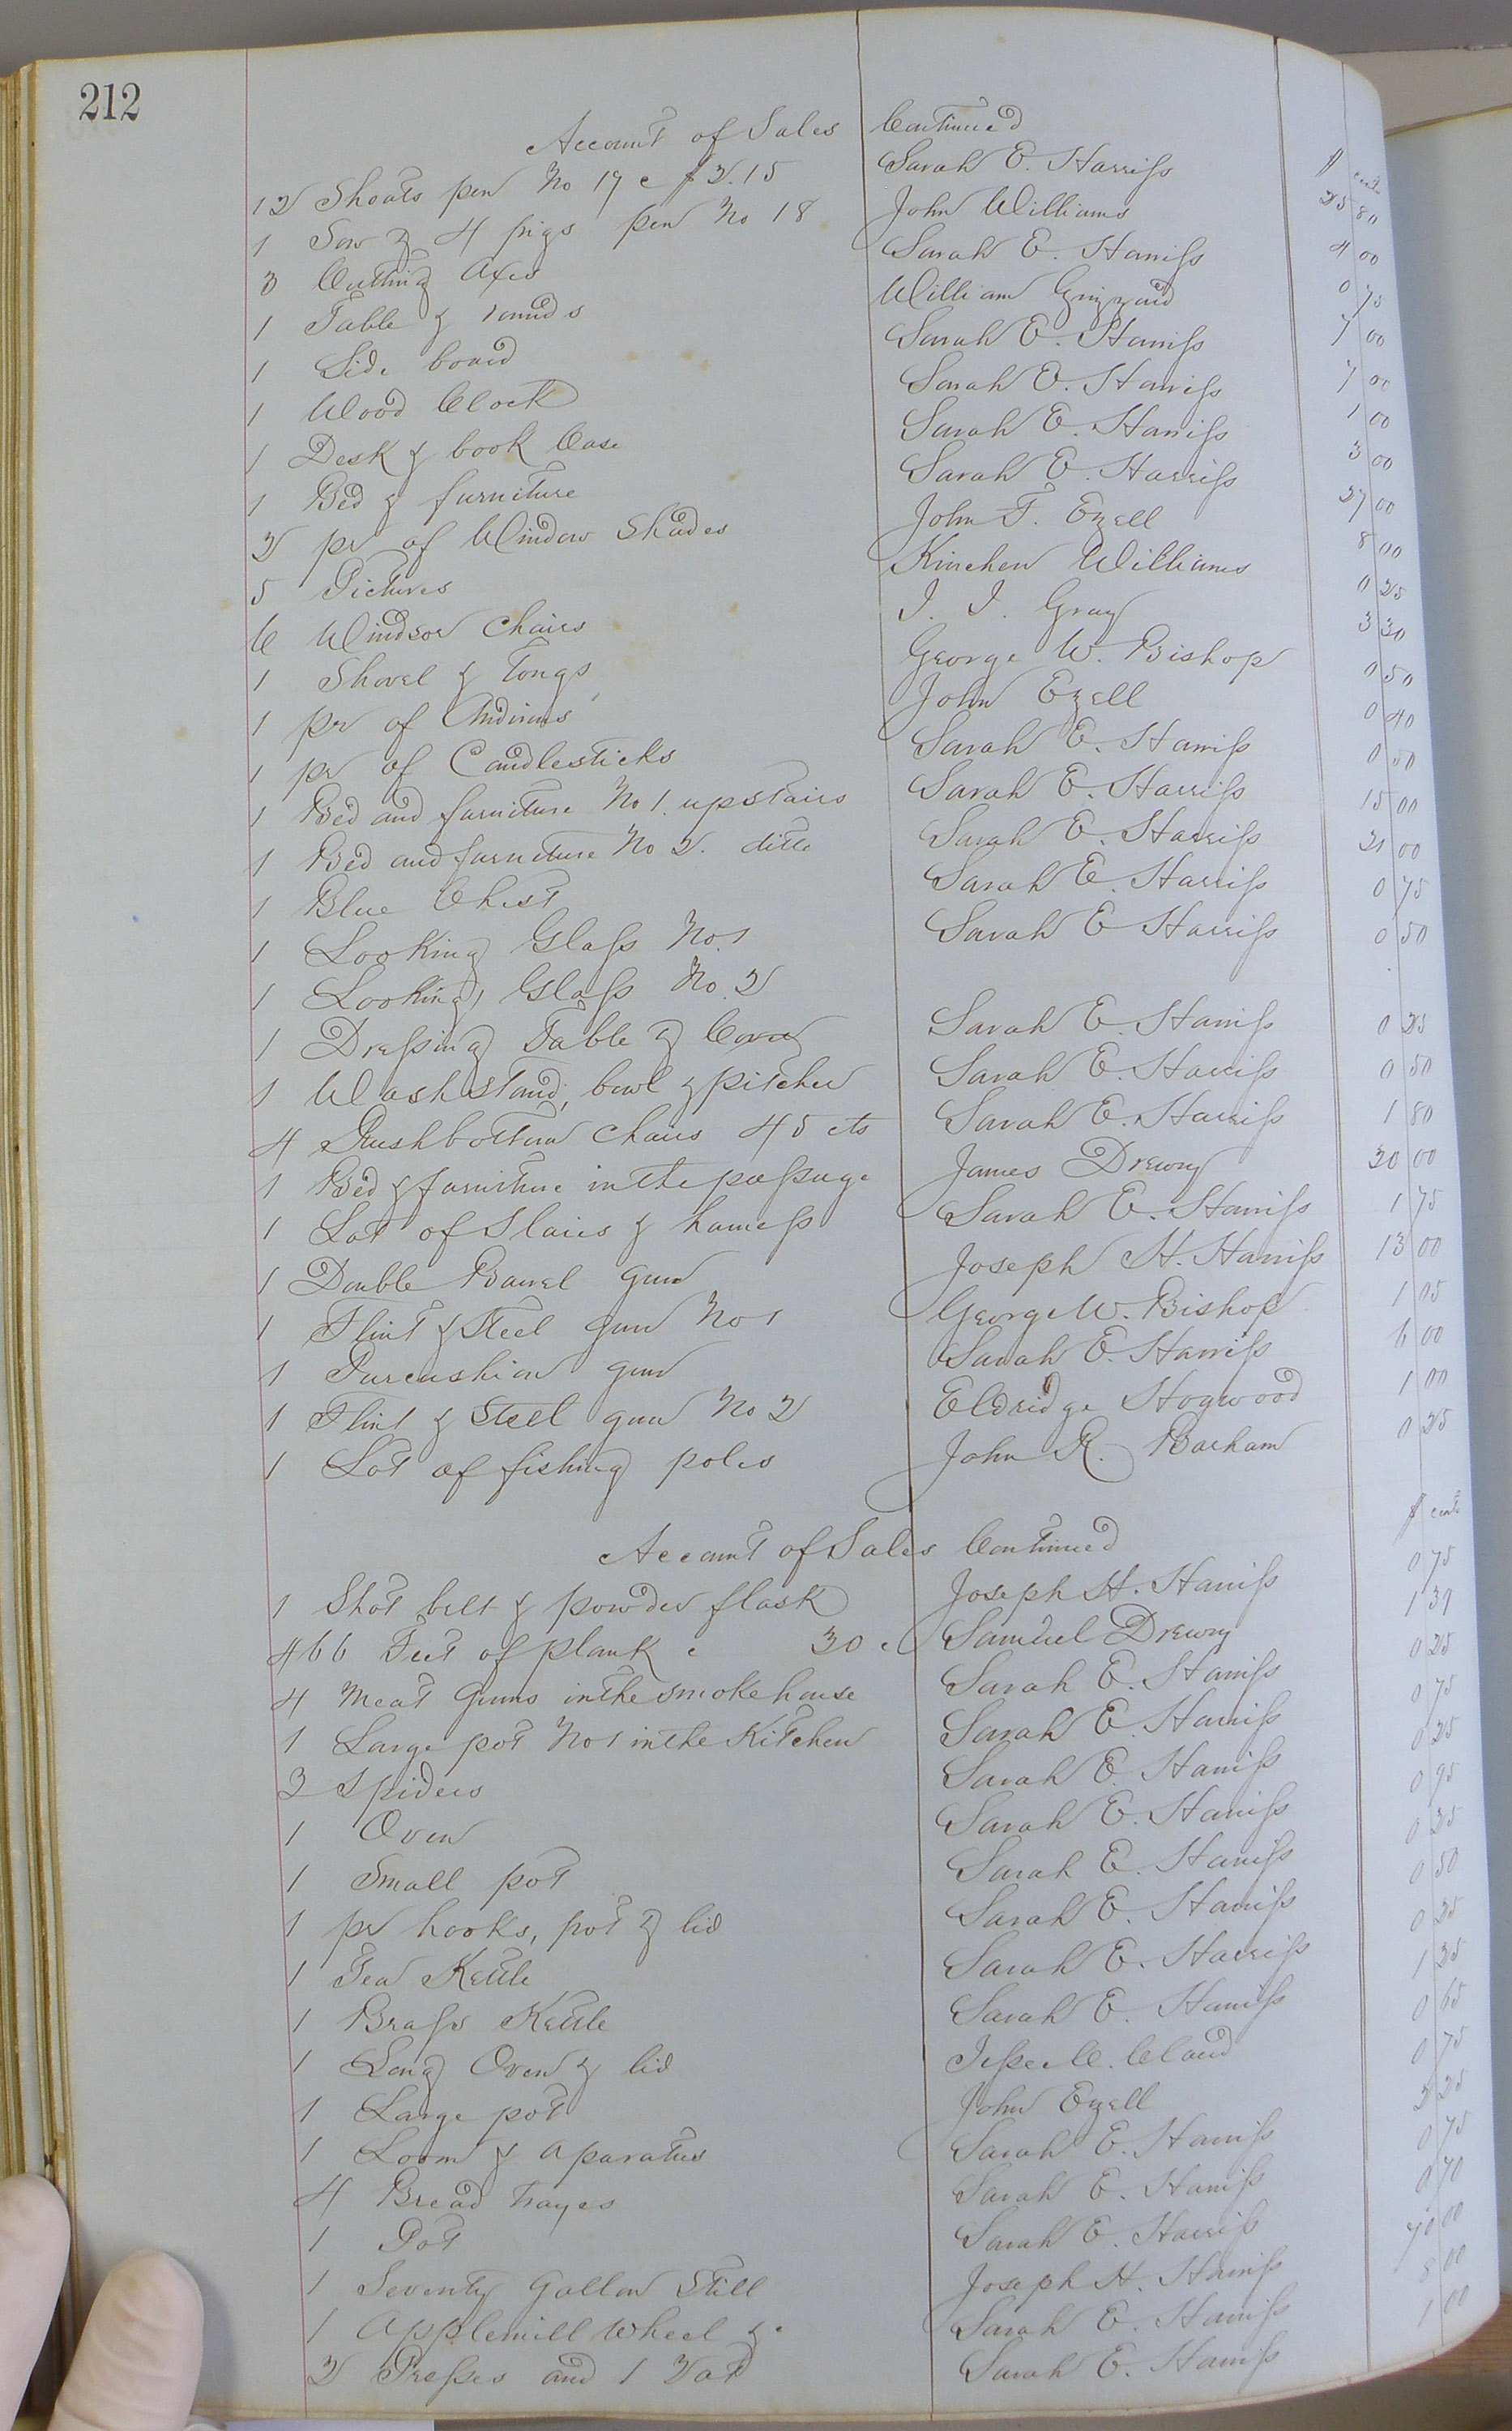 212
Account of Sales Continued
$ cents
12 Shoats pen No 17 @ $2.15 Sarah E. Harriss 25 80
1 Sow & 4 pigs pen No 18 John Williams 4 00
3 Cutting Axes Sarah E. Harriss 0 75
1 Table & rounds William Grizzard 7 00
1 Side board Sarah E. Harriss 7 00
1 Wood Clock Sarah E. Harriss 1 00
1 Desk & book Case Sarah E. Harriss 3 00
1 Bed & furniture Sarah E. Harriss 27 00
2 pr of Window Shades John T. Ezell 8 00
5 Pictures Kinchen Williams 0 25
6 Windsor Chairs J. J. Gray 3 30
1 Shovel & Tongs George W. Bishop 0 50
1 pr of Andirons John Ezell 0 40
1 pr of Candlesticks Sarah E. Harriss 0 50
1 Bed and furniture No 1. upstairs Sarah E. Harriss 15 00
1 Bed and furniture No 2. ditto Sarah E. Harriss 21 00
1 Blue Chest Sarah E. Harriss 0 75
1 Looking Glass No. 1 Sarah E Harriss 0 50
1 Looking Glass No. 2
1 Dressing Table & Cover Sarah E. Harriss 0 25
1 Wash stand, bowl & pitcher Sarah E. Harriss 0 50
4 Rushbottom chairs 45 cts Sarah E. Harriss 1 80
1 Bed & furniture in the passage James Drewry 30 00
1 Lot of Slaies & harness Sarah E. Harriss 1 75
1 Double Barrel gun Joseph H. Harriss 13 00
1 Flint & Steel gun No 1 George W. Bishop 1 05
1 Purcushion gun Sarah E. Harriss 6 00
1 Flint & Steel gun No 2 Eldridge Hogwood 1 00
1 Lot of fishing poles John R. Barham 0 25
Account of Sales Continued
$ cents
1 Shot belt & powder flask Joseph H. Harriss 0 75
466 Feet of plank @ 30 c Samuel Drewry 1 39
4 Meat Gums in the smoke house Sarah E. Harriss 0 25
1 Large pot No 1 in the Kitchen Sarah E. Harriss 0 75
3 Spiders Sarah E. Harriss 0 25
1 Oven Sarah E. Harriss 0 95
1 Small pot Sarah E. Harriss 0 25
1 pr hooks, pot & lid Sarah E. Harriss 0 50
1 Tea Kettle Sarah E. Harriss 0 25
1 Brass Kettle Sarah E. Harriss 1 25
1 Long Oven & lid Jesse C. Claud 0 65
1 Large pot John Ezell 0 75
1 Loom & Aparatus Sarah E. Harriss 2 25
4 Bread trayes Sarah E. Harriss 0 75
1 Pot Sarah E. Harriss 0 70
1 Seventy Gallon Still Joseph H. Harriss 70 00
1 Applemill Wheel &c Sarah E. Harriss 8 00
2 Presses and 1 Vat Sarah E. Harriss 1 00